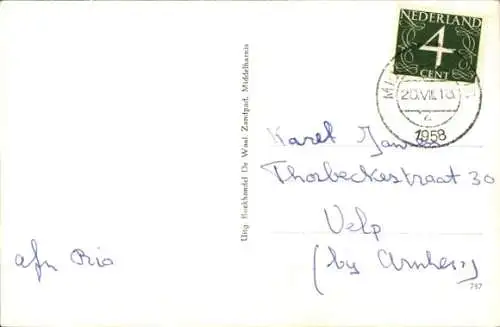 NEDERLAND
4
CENT
20.VII.10
1958
Uitg. Boekhandel De Waal, Zandpad, Middelharnis
Karel
Thorbeckestraat 30
Velp
(by Arnhem)
afz. Rio
757